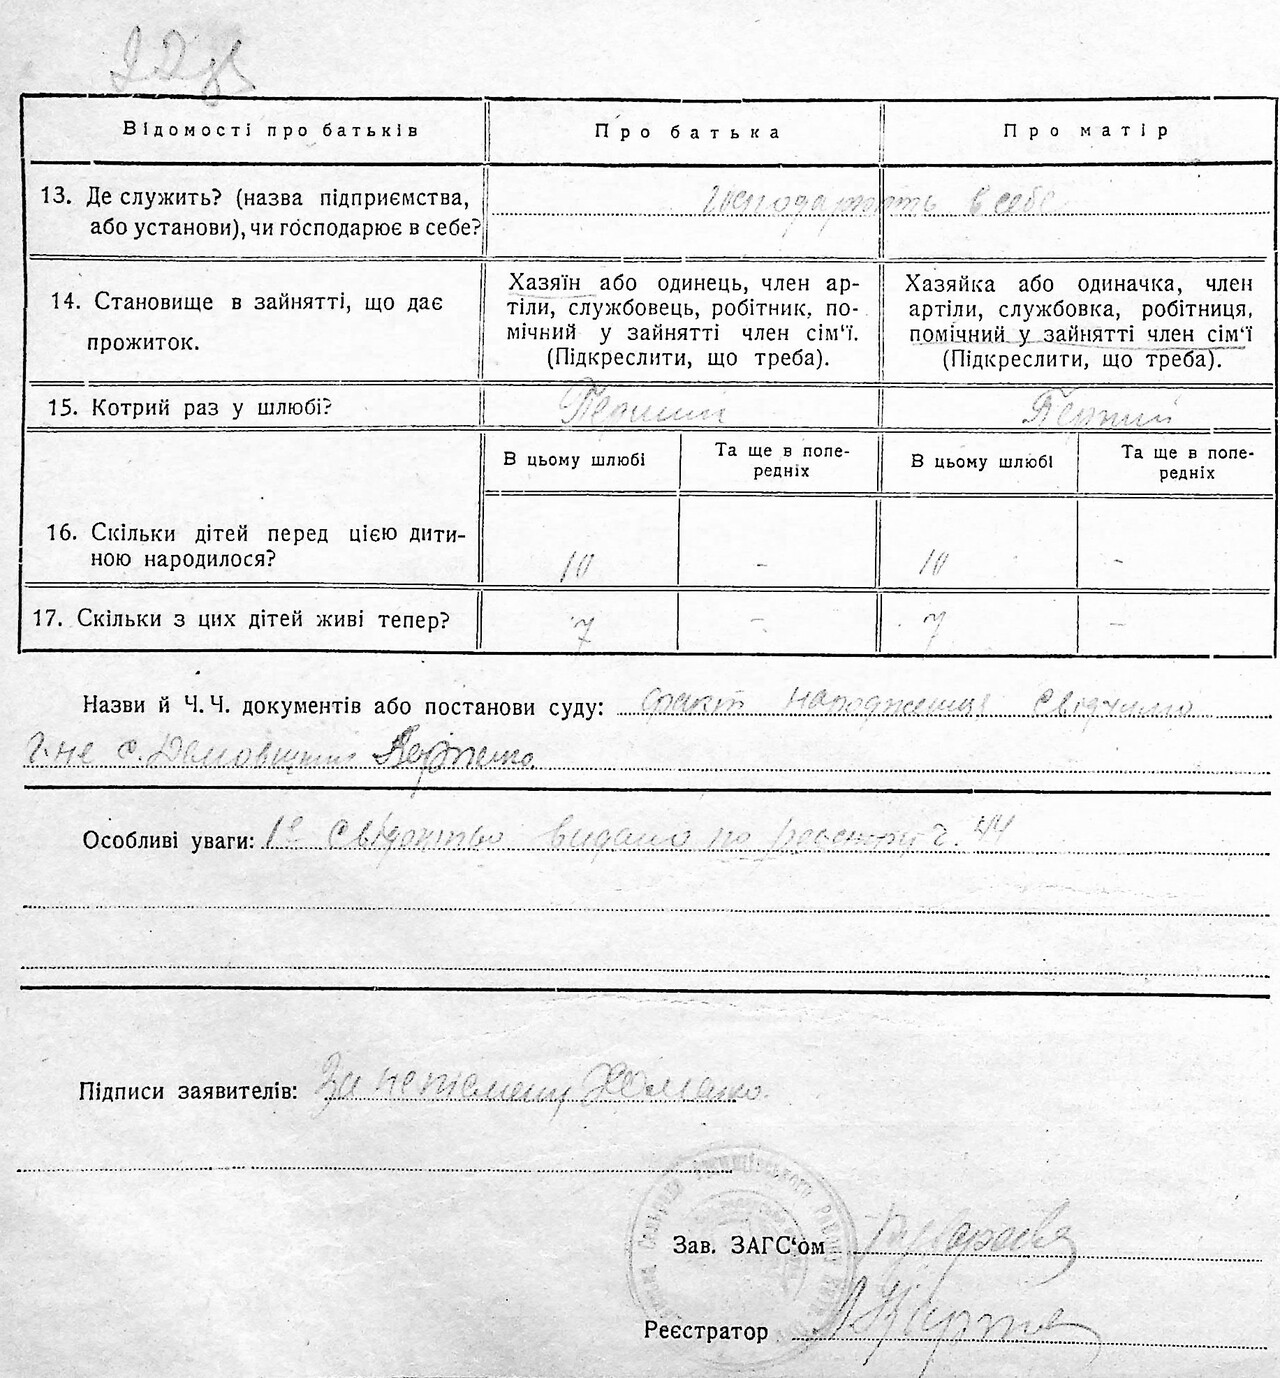 22 зв
Відомості про батьків
Про батька
Про матір
13. Де служить? (назва підприємства,
або установи), чи господарює в себе?
Господарюють в себе
14. Становище в зайнятті, що дає
прожиток.
Хазяїн або одинець, член ар-
тіли, службовець, робітник, по-
мічний у зайнятті член сім‘ї.
(Підкреслити, що треба).
Хазяйка або одиначка, член
артіли, службовка, робітниця,
помічний у зайнятті член сім‘ї
(Підкреслити, що треба).
15. Котрий раз у шлюбі?
Перший
Перший
В цьому шлюбі
Та ще в попе-
редніх
В цьому шлюбі
Та ще в попе-
редніх
16. Скільки дітей перед цією дити-
ною народилося?
10
-
10
-
17. Скільки з цих дітей живі тепер?
7
-
7
-
Назви й Ч. Ч. документів або постанови суду: факт народження свідчила
с.
Особливі уваги: 1е свідоцтво видано по реєстру ч. 44
Підписи заявителів: За неписьмену
Зав. ЗАГС‘ом
Реєстратор